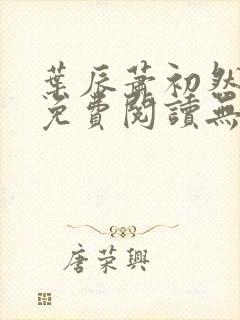 葉辰蕭初然
免費閱讀無
唐荣興